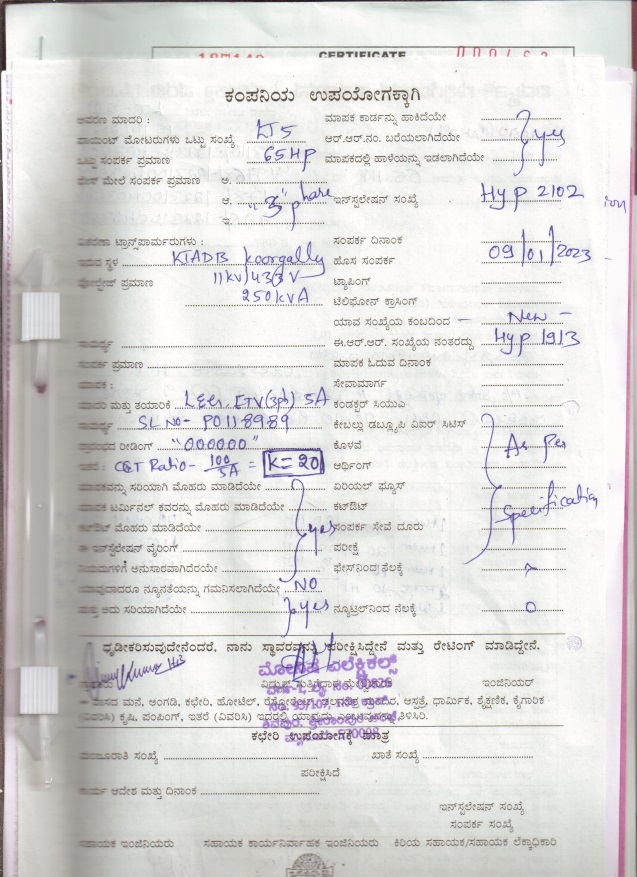 CERTIFICATE
ಕಂಪನಿಯ ಉಪಯೋಗಕ್ಕಾಗಿ
ಆವರಣ ಮಾದರಿ : LT5
ಮಾಪಕ ಕಾರ್ಡನ್ನು ಹಾಕಿದೆಯೇ
ಪಾಯಿಂಟ್ ಮೋಟರುಗಳು ಒಟ್ಟು ಸಂಖ್ಯೆ
ಆರ್.ಆರ್.ನಂ. ಬರೆಯಲಾಗಿದೆಯೇ yes
ಒಟ್ಟು ಸಂಪರ್ಕ ಪ್ರಮಾಣ 65HP
ಮಾಪಕದಲ್ಲಿ ಹಾಳೆಯನ್ನು ಇಡಲಾಗಿದೆಯೇ
ಫೇಸ್ ಮೇಲೆ ಸಂಪರ್ಕ ಪ್ರಮಾಣ ಅ.
ಆ. "3" phase
ಇನ್‌ಸ್ಟಲೇಷನ್ ಸಂಖ್ಯೆ Hyp 2102
ಇ.
ion
ವಿತರಣಾ ಟ್ರಾನ್ಸ್‌ಫಾರ್ಮರುಗಳು :
ಸಂಪರ್ಕ ದಿನಾಂಕ
ಇರುವ ಸ್ಥಳ KIADB Koorgally
ಹೊಸ ಸಂಪರ್ಕ 09/01/2023
ವೋಲ್ಟೇಜ್ ಪ್ರಮಾಣ 11KV/433V
ಟ್ಯಾಪಿಂಗ್
250KVA
ಟೆಲಿಫೋನ್ ಕ್ರಾಸಿಂಗ್
ಯಾವ ಸಂಖ್ಯೆಯ ಕಂಬದಿಂದ – New –
ಸಾಮರ್ಥ್ಯ
ಈ.ಆರ್.ಆರ್. ಸಂಖ್ಯೆಯ ನಂತರದ್ದು Hyp 1913
ಸಂಪರ್ಕ ಪ್ರಮಾಣ
ಮಾಪಕ ಓದುವ ದಿನಾಂಕ
ಮಾಪಕ :
ಸೇವಾಮಾರ್ಗ
ಮಾದರಿ ಮತ್ತು ತಯಾರಿಕೆ ETV(3ph) 5A
ಕಂಡಕ್ಟರ್ ಸಿಯುಎ
ಸಾಮರ್ಥ್ಯ SL No- P0118989
ಕೇಬಲ್ಲು ಡಬ್ಲ್ಯೂಪಿ ವಿಐರ್ ಸಿಟಿಸ್
ಪ್ರಾರಂಭದ ರೀಡಿಂಗ್ "000000"
ಕೊಳವೆ As Per
ಇತರೆ : C&T Ratio- 100/5A = K=20
ಆರ್ಥಿಂಗ್
ಮಾಪಕವನ್ನು ಸರಿಯಾಗಿ ಮೊಹರು ಮಾಡಿದೆಯೇ
ಏರಿಯಲ್ ಫ್ಯೂಸ್
ಮಾಪಕ ಟರ್ಮಿನಲ್ ಕವರನ್ನು ಮೊಹರು ಮಾಡಿದೆಯೇ
ಕಟ್‌ಔಟ್ Specification
ಕಟ್‌ಔಟ್ ಮೊಹರು ಮಾಡಿದೆಯೇ yes
ಸಂಪರ್ಕ ಸೇವೆ ದೂರು
ಈ ಇನ್‌ಸ್ಟಲೇಷನ್ ವೈರಿಂಗ್
ಪರೀಕ್ಷೆ
ನಿಯಮಗಳಿಗೆ ಅನುಸಾರವಾಗಿದೆಯೇ
ಫೇಸ್‌ನಿಂದ ನೆಲಕ್ಕೆ
ಯಾವುದಾದರೂ ನ್ಯೂನತೆಯನ್ನು ಗಮನಿಸಲಾಗಿದೆಯೇ NO
ಮತ್ತು ಅದು ಸರಿಯಾಗಿದೆಯೇ yes
ನ್ಯೂಟ್ರಲ್‌ನಿಂದ ನೆಲಕ್ಕೆ 0
ಧೃಡೀಕರಿಸುವುದೇನೆಂದರೆ, ನಾನು ಸ್ಥಾವರವನ್ನು ಪರೀಕ್ಷಿಸಿದ್ದೇನೆ ಮತ್ತು ರೇಟಿಂಗ್ ಮಾಡಿದ್ದೇನೆ.
ಇಂಜಿನಿಯರ್
ವಾಸದ ಮನೆ, ಅಂಗಡಿ, ಕಛೇರಿ, ಹೋಟೆಲ್, ಆಸ್ಪತ್ರೆ, ಧಾರ್ಮಿಕ, ಶೈಕ್ಷಣಿಕ, ಕೈಗಾರಿಕೆ
(ವಿವರಿಸಿ) ಕೃಷಿ, ಪಂಪಿಂಗ್, ಇತರೆ (ವಿವರಿಸಿ) ಇದರಲ್ಲಿ ತಿಳಿಸಿರಿ.
ಕಛೇರಿ ಉಪಯೋಗಕ್ಕೆ ಮಾತ್ರ
ಮಂಜೂರಾತಿ ಸಂಖ್ಯೆ
ಖಾತೆ ಸಂಖ್ಯೆ
ಪರೀಕ್ಷಿಸಿದೆ
ಕಾರ್ಯ ಆದೇಶ ಮತ್ತು ದಿನಾಂಕ
ಇನ್‌ಸ್ಟಲೇಷನ್ ಸಂಖ್ಯೆ
ಸಂಪರ್ಕ ಸಂಖ್ಯೆ
ಸಹಾಯಕ ಇಂಜಿನಿಯರು ಸಹಾಯಕ ಕಾರ್ಯನಿರ್ವಾಹಕ ಇಂಜಿನಿಯರು ಕಿರಿಯ ಸಹಾಯಕ/ಸಹಾಯಕ ಲೆಕ್ಕಾಧಿಕಾರಿ